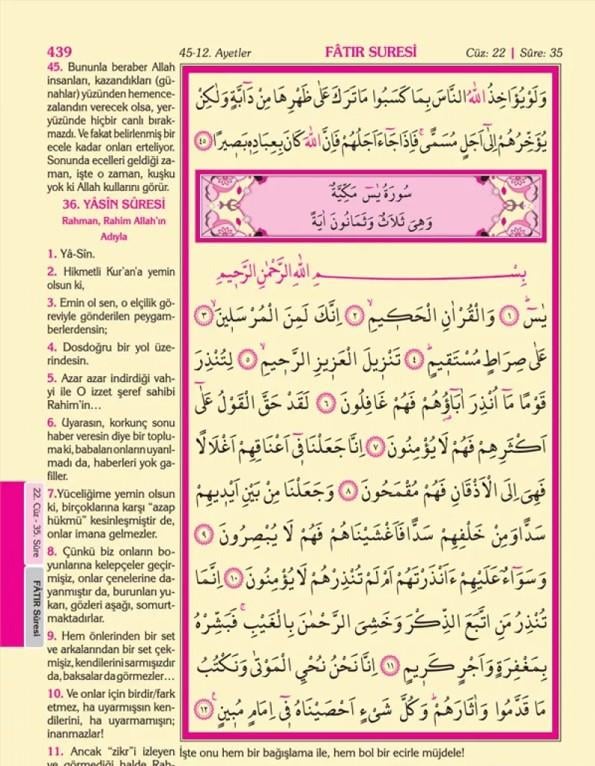 439
45-12. Ayetler
FÂTIR SURESİ
Cüz: 22 | Sûre: 35
45. Bununla beraber Allah
insanları, kazandıkları (gü-
nahlar) yüzünden hemence-
zalandırı verecek olsa, yer-
yüzünde hiçbir canlı bırak-
mazdı. Ve fakat belirlenmiş bir
ecele kadar onları erteliyor.
Sonunda ecelleri geldiği za-
man, işte o zaman, kuşku
yok ki Allah kullarını görür.
36. YÂSÎN SÛRESİ
Rahman, Rahim Allah'ın
Adıyla
1. Yâ-Sîn.
2. Hikmetli Kur'an'a yemin
olsun ki,
3. Emin ol sen, o elçilik gö-
reviyle gönderilen peygam-
berlerdensin;
4. Dosdoğru bir yol üze-
rindesin.
5. Azar azar indirdiği vah-
yi ile O izzet şeref sahibi
Rahim'in...
6. Uyarasın, korkunç sonu
haber veresin diye bir toplu-
ma ki, babaları onların uyarıl-
madı da, haberleri yok ga-
filler.
7.Yüceliğime yemin olsun
ki, birçoklarına karşı "azap
hükmü" kesinleşmiştir de,
onlar imana gelmezler.
8. Çünkü biz onların bo-
yunlarına kelepçeler geçir-
mişiz, onlar çenelerine da-
yanmıştır da, burunları yu-
karı, gözleri aşağı, somurt-
maktadırlar.
9. Hem önlerinden bir set
ve arkalarından bir set çek-
mişiz, kendilerini sarmışızdır
da, baksalar da görmezler...
10. Ve onlar için birdir/fark
etmez, ha uyarmışsın ken-
dilerini, ha uyarmamışın;
inanmazlar!
11. Ancak "zikr"i izleyen
ve görmediği halde Rah-
İşte onu hem bir bağışlama ile, hem bol bir ecirle müjdele!
22. Cüz - 35. Sûre
FÂTIR Sûresi
وَلَوْ يُؤَاخِذُ اللّٰهُ النَّاسَ بِمَا كَسَبُوا مَا تَرَكَ عَلٰى ظَهْرِهَا مِنْ دَٓابَّةٍ وَلٰكِنْ
يُؤَخِّرُهُمْ اِلٰٓى اَجَلٍ مُسَمًّىۚ فَاِذَا جَٓاءَ اَجَلُهُمْ فَاِنَّ اللّٰهَ كَانَ بِعِبَادِهٖ بَصٖيرًا ٤٥
سُورَةُ يٰسٓ مَكِّيَّةٌ
وَهِيَ ثَلَاثٌ وَثَمَانُونَ اٰيَةً
بِسْمِ اللّٰهِ الرَّحْمٰنِ الرَّحٖيمِ
يٰسٓۜ ١ وَالْقُرْاٰنِ الْحَكٖيمِۙ ٢ اِنَّكَ لَمِنَ الْمُرْسَلٖينَۙ ٣
عَلٰى صِرَاطٍ مُسْتَقٖيمٍۜ ٤ تَنْزٖيلَ الْعَزٖيزِ الرَّحٖيمِۙ ٥ لِتُنْذِرَ
قَوْمًا مَٓا اُنْذِرَ اٰبَٓاؤُ۬هُمْ فَهُمْ غَافِلُونَ ٦ لَقَدْ حَقَّ الْقَوْلُ عَلٰٓى
اَكْثَرِهِمْ فَهُمْ لَا يُؤْمِنُونَ ٧ اِنَّا جَعَلْنَا فٖٓي اَعْنَاقِهِمْ اَغْلَالًا
فَهِيَ اِلَى الْاَذْقَانِ فَهُمْ مُقْمَحُونَ ٨ وَجَعَلْنَا مِنْ بَيْنِ اَيْدٖيهِمْ
سَدًّا وَمِنْ خَلْفِهِمْ سَدًّا فَاَغْشَيْنَاهُمْ فَهُمْ لَا يُبْصِرُونَ ٩
وَسَوَٓاءٌ عَلَيْهِمْ ءَاَنْذَرْتَهُمْ اَمْ لَمْ تُنْذِرْهُمْ لَا يُؤْمِنُونَ ١٠ اِنَّمَا
تُنْذِرُ مَنِ اتَّبَعَ الذِّكْرَ وَخَشِيَ الرَّحْمٰنَ بِالْغَيْبِۚ فَبَشِّرْهُ
بِمَغْفِرَةٍ وَاَجْرٍ كَرٖيمٍ ١١ اِنَّا نَحْنُ نُحْيِ الْمَوْتٰى وَنَكْتُبُ
مَا قَدَّمُوا وَاٰثَارَهُمْۜ وَكُلَّ شَيْءٍ اَحْصَيْنَاهُ فٖٓي اِمَامٍ مُبٖينٍ۟ ١٢